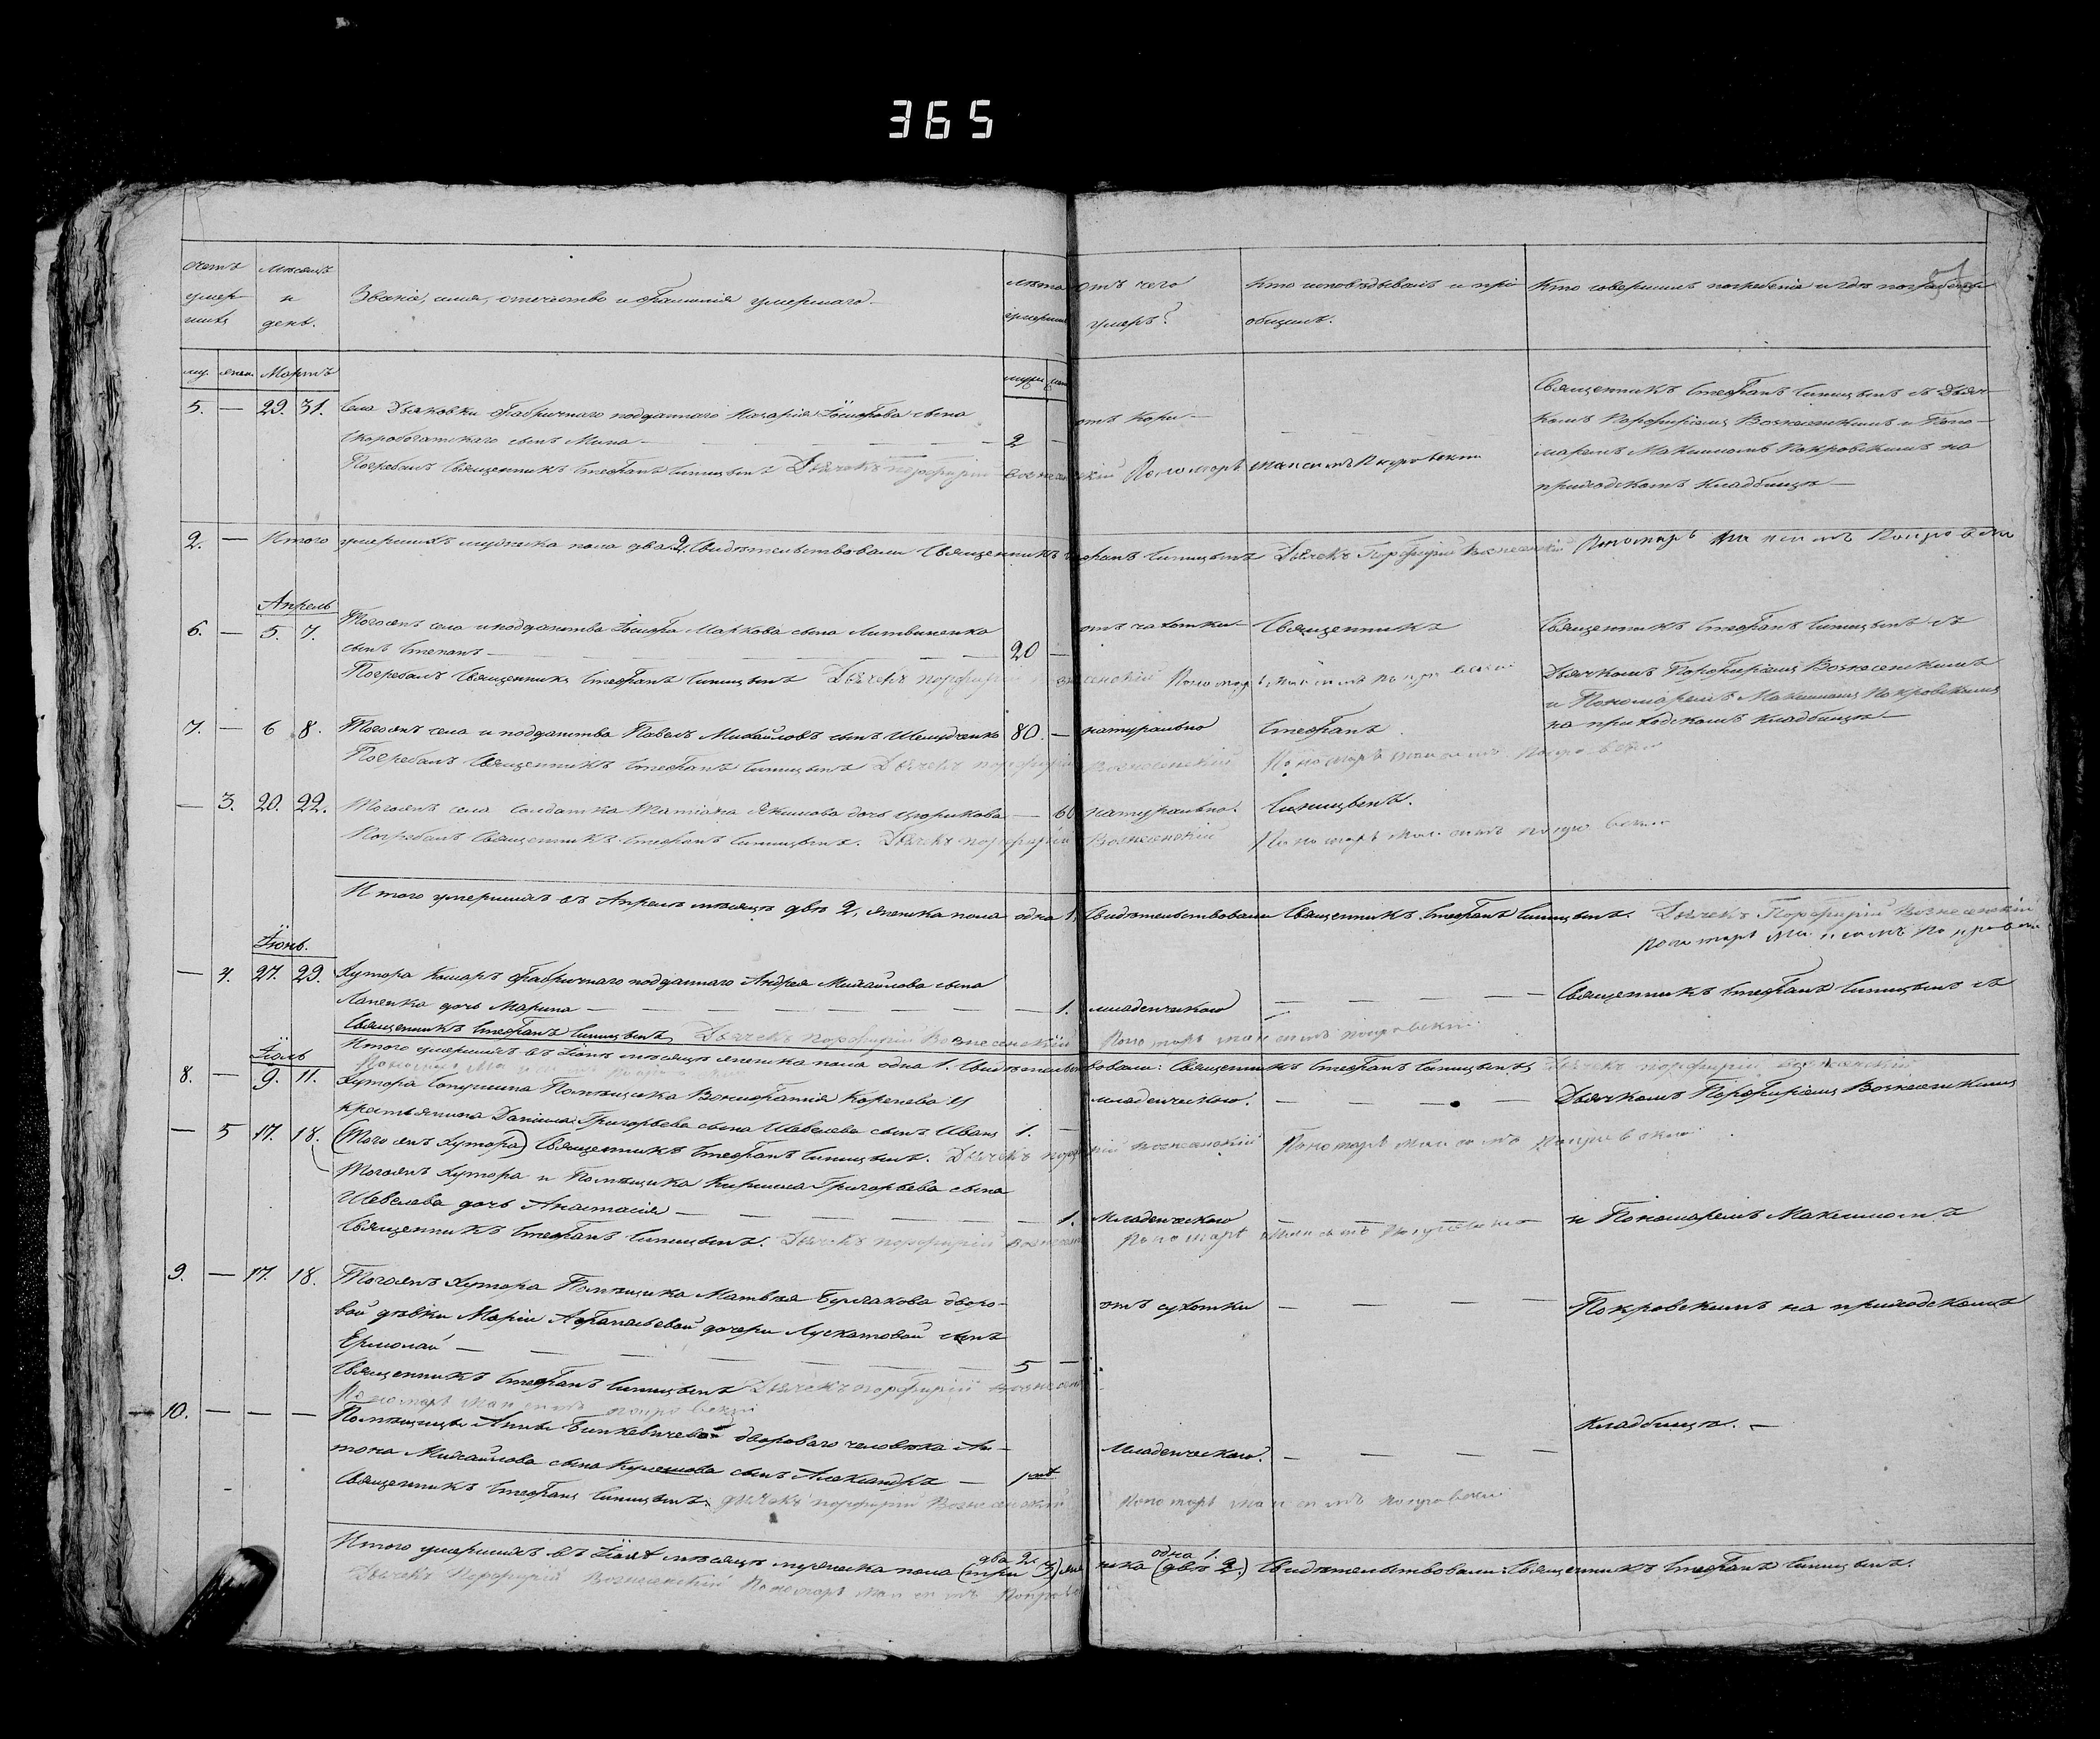 365
51
счетъ умер-шихъ
мѣсяцъ и день.
Званіе, имя, отчество и фамилія умершаго.
лѣта умершихъ
отъ чего умеръ?
Кто исповѣдывалъ и прі-
общилъ.
Кто совершилъ погребеніе и гдѣ погребены
му. жен. Мартъ
муж. жен.
5. — 29. 31. Села Дьяковки фабричнаго подданнаго Назарія Іосифова сына
Скоробогатскаго сынъ Мина — 2 —
отъ кори —
Священникъ Стефанъ Синицынъ съ Дьяч-
комъ Порфиріемъ Вознесенскимъ и Поно-
маремъ Максимомъ Покровскимъ на
приходскомъ кладбищѣ —
Погребалъ Священникъ Стефанъ Синицынъ Дьячекъ Порфирій Вознесенскій Пономарь Максимъ Покровскій
2. — Итого умершихъ мужеска пола два 2. Свидѣтельствовали Священникъ Стефанъ Синицынъ Дьячекъ Порфирій Вознесенскій Пономарь Максимъ Покровскій
Апрель
6. — 5. 7. Тогоже села и подданства Іосифа Маркова сына Литвиненка
сынъ Степанъ — 20 —
отъ чахотки — Священникъ
Священникъ Стефанъ Синицынъ съ
Дьячкомъ Порфиріемъ Вознесенскимъ
и Пономаремъ Максимомъ Покровскимъ
на приходскомъ кладбищѣ —
Погребалъ Священникъ Стефанъ Синицынъ Дьячекъ Порфирій Вознесенскій Пономарь Максимъ Покровскій
7. — 6 8. Тогожъ села и подданства Павелъ Михайловъ сынъ 80. — натурально Стефанъ
Погребалъ Священникъ Стефанъ Синицынъ Дьячекъ Порфирій Вознесенскій Пономарь Максимъ Покровскій
— 3. 20. 22. Тогожъ села солдатка Татіана Якимова дочь — 60 натурально. Синицынъ.
Погребалъ Священникъ Стефанъ Синицынъ. Дьячекъ Порфирій Вознесенскій Пономарь Максимъ Покровскій
Итого умершихъ въ Апрелѣ мѣсяцѣ двѣ 2, женска пола одна 1. Свидѣтельствовали Священникъ Стефанъ Синицынъ. Дьячекъ Порфирій Вознесенскій
Пономарь Максимъ Покровскій
Іюнь.
— 4. 27. 29. Хутора Комаръ фабричнаго подданнаго Андрея Михайлова сына
Лапенка дочь Марина — 1. младенческою — Священникъ Стефанъ Синицынъ съ
Священникъ Стефанъ Синицынъ Дьячекъ Порфирій Вознесенскій Пономарь Максимъ Покровскій
Итого умершихъ въ Іюнѣ мѣсяцѣ женска пола одна 1. Свидѣтельствовали: Священникъ Стефанъ Синицынъ Дьячекъ Порфирій Вознесенскій
Пономарь Максимъ Покровскій
Іюль
8. — 9. 11. Хутора Помѣщика Корепева
крестьянина Даніила Григорьева сына Шевелева сынъ Иванъ 1. —
младенческою. — Дьячкомъ Порфиріемъ Вознесенскимъ
— 5 17. 18. (Тогожъ хутора) Священникъ Стефанъ Синицынъ. Дьячекъ Порфирій Вознесенскій Пономарь Максимъ Покровскій
Тогожъ хутора и Помѣщика Кирилла Григорьева сына
Шевелева дочь Анастасія — 1. Младенческою — и Пономаремъ Максимомъ
Священникъ Стефанъ Синицынъ. Дьячекъ Порфирій Вознесенскій Пономарь Максимъ Покровскій
9. — 17. 18. Тогожъ хутора Помѣщика Матвѣя дворо-
вой дѣвки Маріи Афанасьевой дочери Лускатовой сынъ
Ермолай — 5 —
отъ сухотки — Покровскимъ на приходскомъ
Священникъ Стефанъ Синицынъ Дьячекъ Порфирій Вознесенскій
Пономарь Максимъ Покровскій
10. — — — Помѣщицы Анны Бинкевичевой двороваго человѣка Ан-
тона Михайлова сына Кулешова сынъ Александръ — 1
младенческою. — Кладбищѣ. —
Священникъ Стефанъ Синицынъ. Дьячекъ Порфирій Вознесенскій Пономарь Максимъ Покровскій
два 2. одна 1.
Итого умершихъ въ Іюлѣ мѣсяцѣ мужеска пола (три 3) женска (двѣ 2.) Свидѣтельствовали: Священникъ Стефанъ Синицынъ.
Дьячекъ Порфирій Вознесенскій Пономарь Максимъ Покровскій